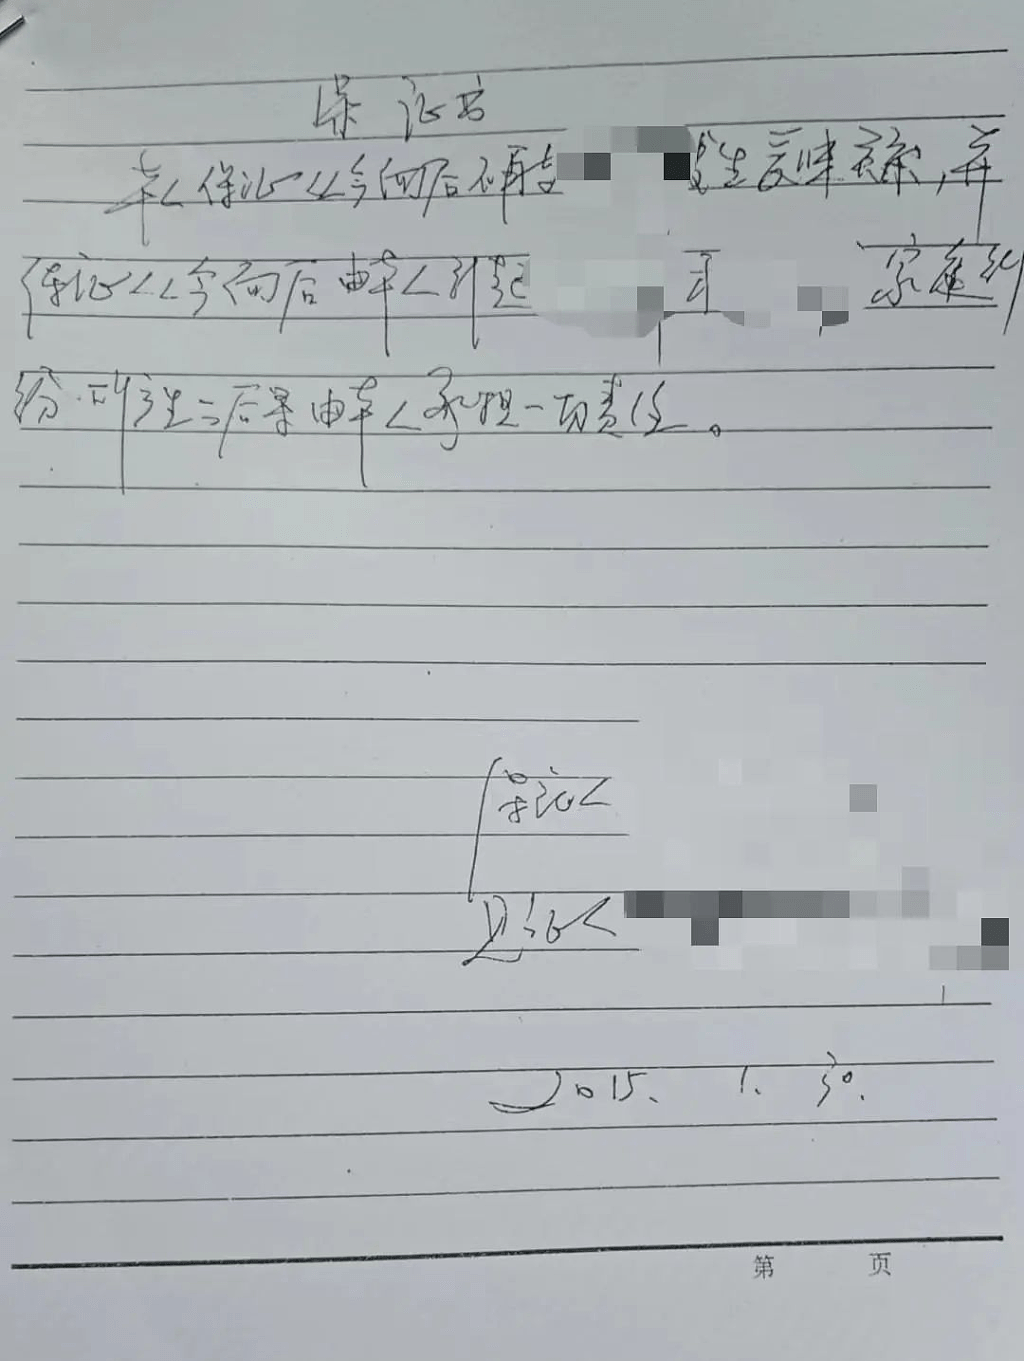 保证书
本人保证从今向后不再与 发生暧昧关系,并
保证从今向后由本人引起 家庭纠
纷.所产生之后果由本人承担一切责任。
保证人
见证人
2015. 1. 30.
第 页